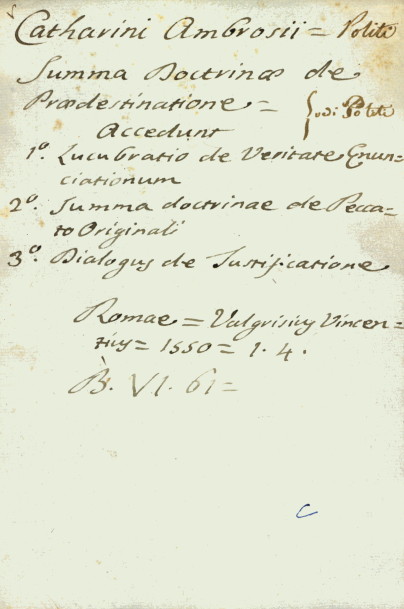 Catharini Ambrosii = Polite
Summa Doctrinae de
Praedestinatione = odi Polite
Accedunt
1º. Lucubratio de Veritate Enun=
ciationum
2º. Summa doctrinae de Pecca=
to Originali
3º. Dialogus de Justificatione
Romae = Valgrisius Vincen=
tius = 1550 = 1. 4.
B. VI. 61 =
C